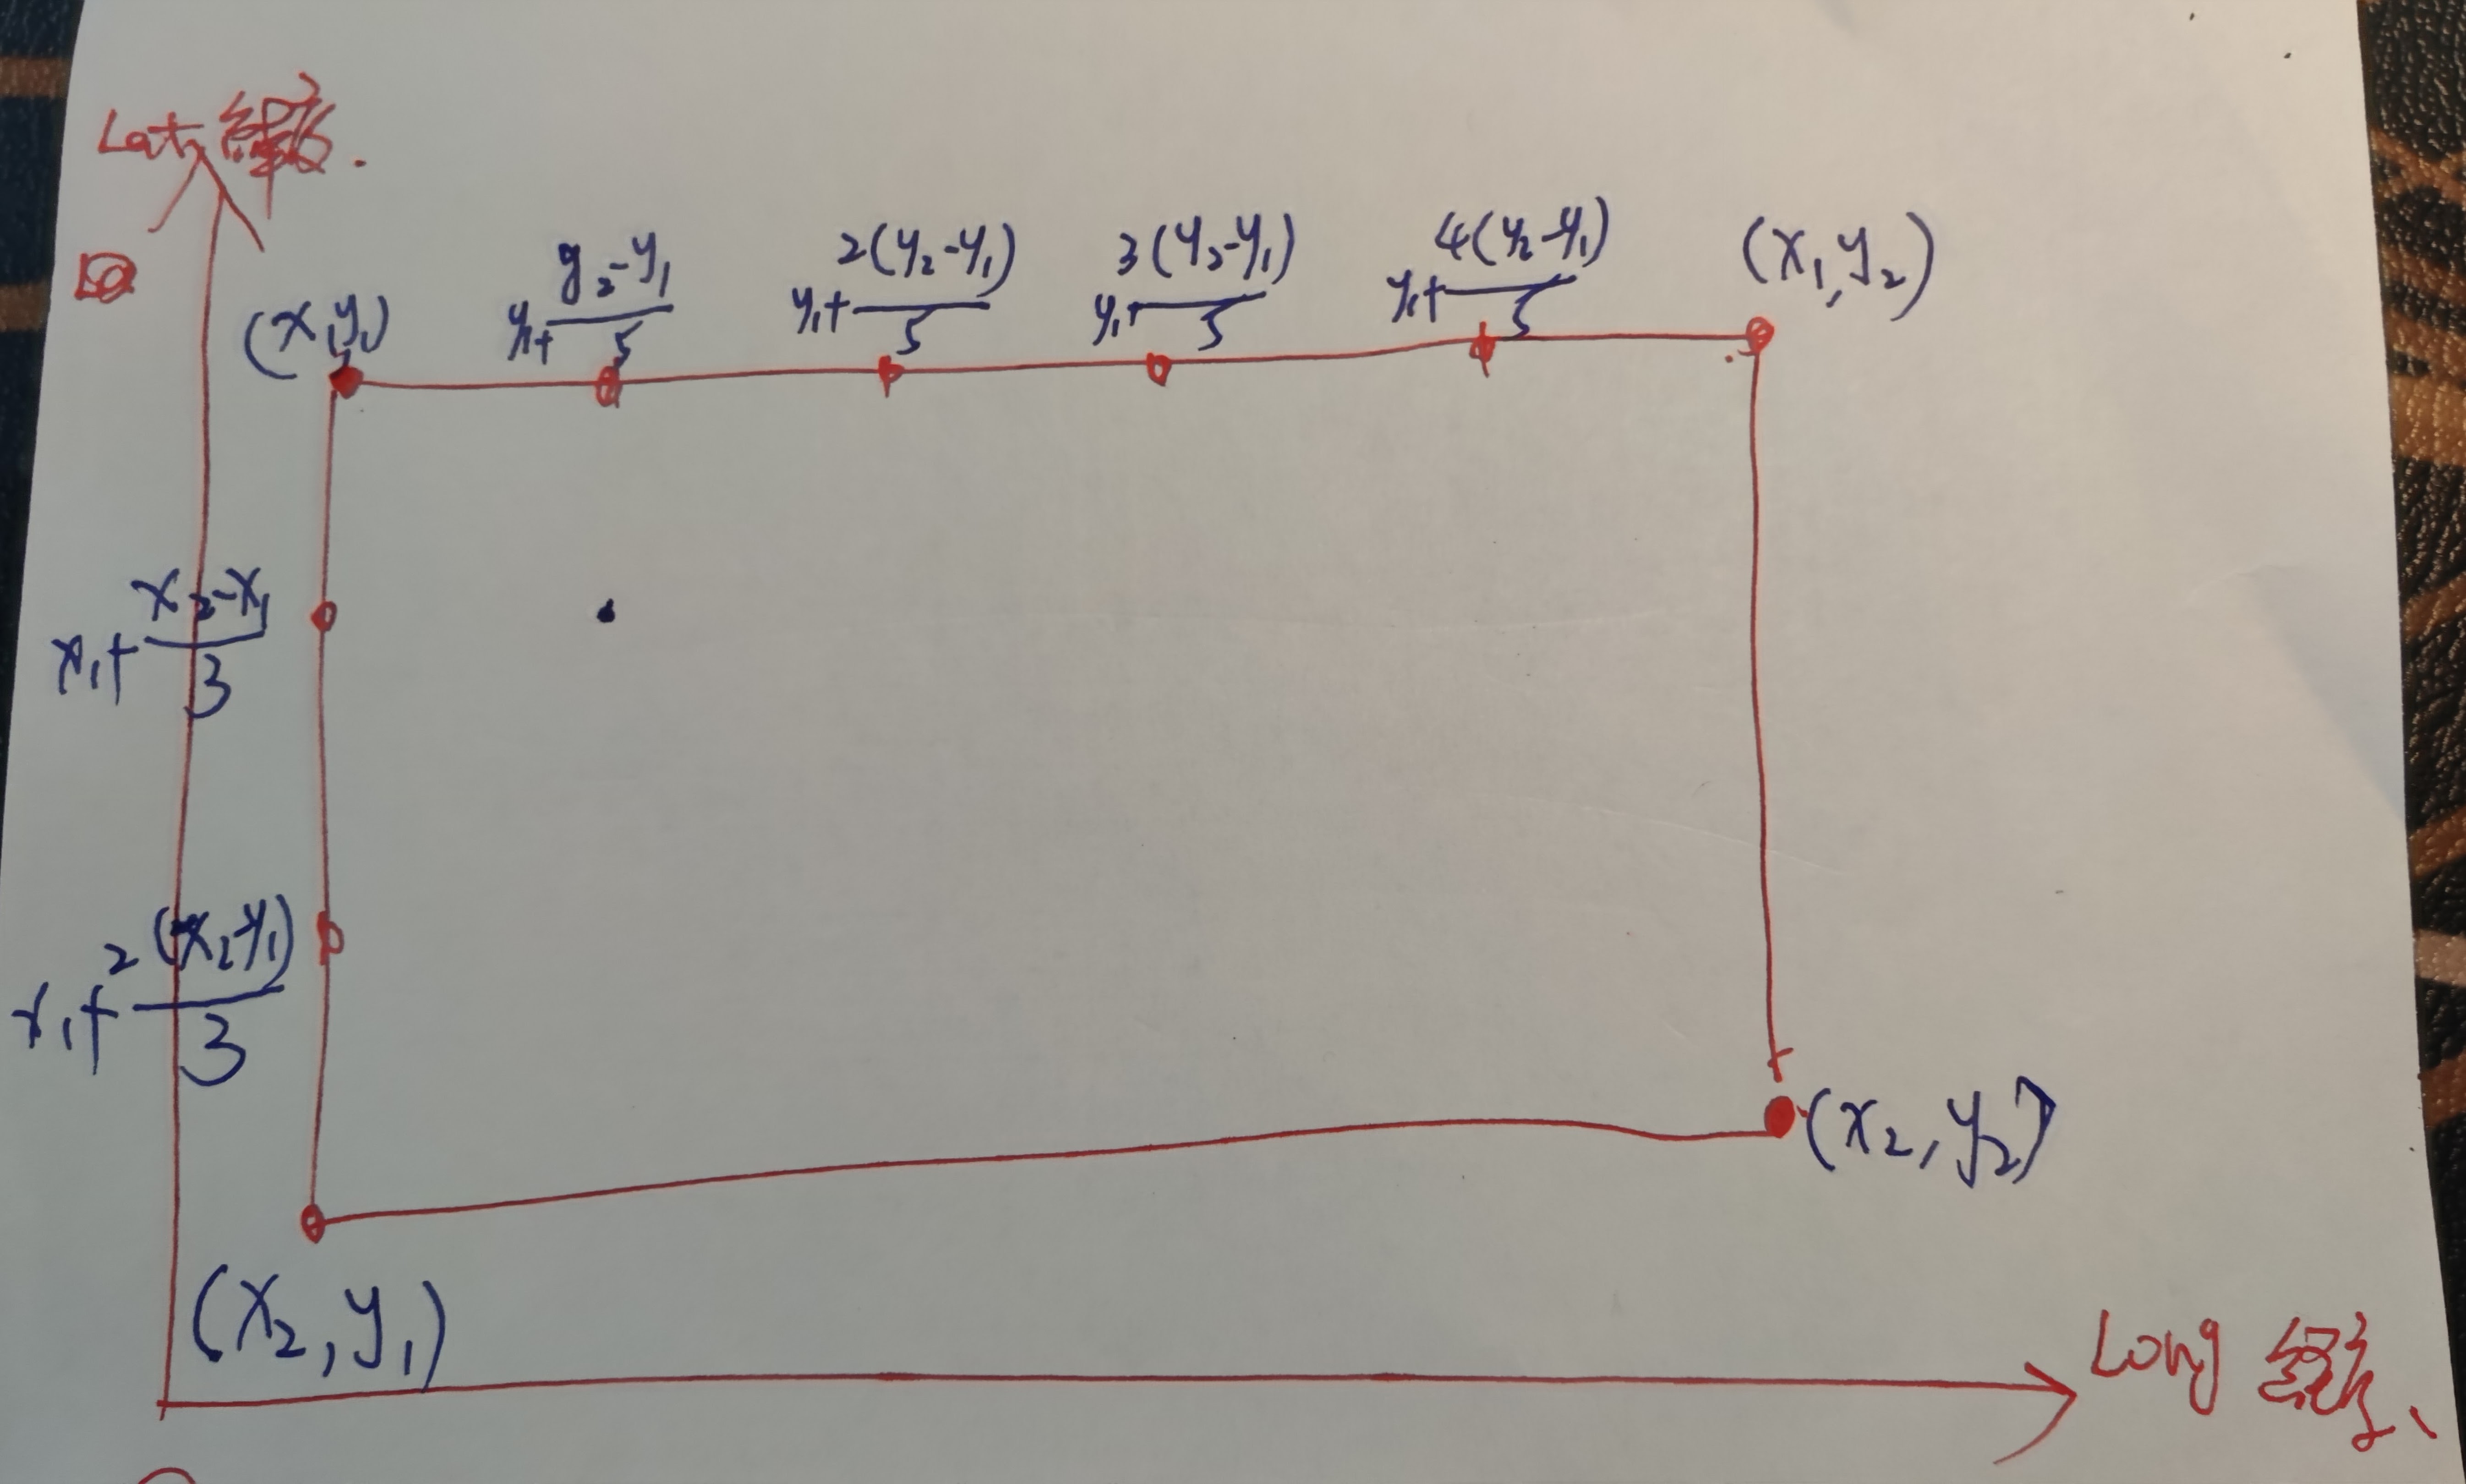 Lat, 緯度.
(x₁y₁)
y₁+ (y₂-y₁)/5
y₁+ 2(y₂-y₁)/5
y₁+ 3(y₂-y₁)/5
y₁+ 4(y₂-y₁)/5
(x₁,y₂)
x₁+ (x₂-x₁)/3
x₁+ 2(x₂-y₁)/3
(x₂,y₂)
(x₂,y₁)
Long 經度、